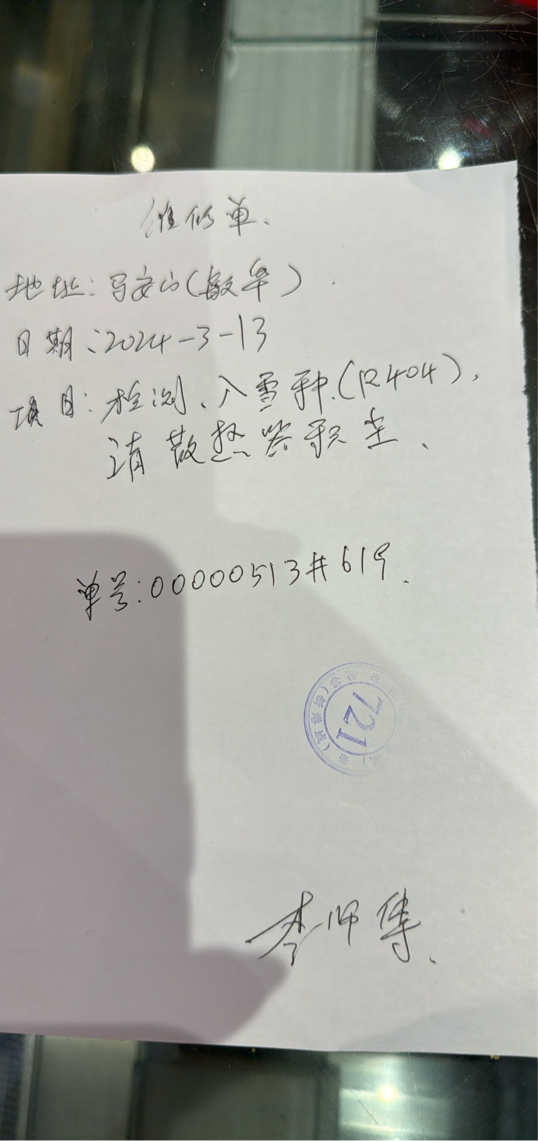 维修单.
地址:马安山(敏华).
日期:2024-3-13
项目:检测、入雪种.(R404),
清散热器积尘、
单号:00000513#619.
721
李师傅.